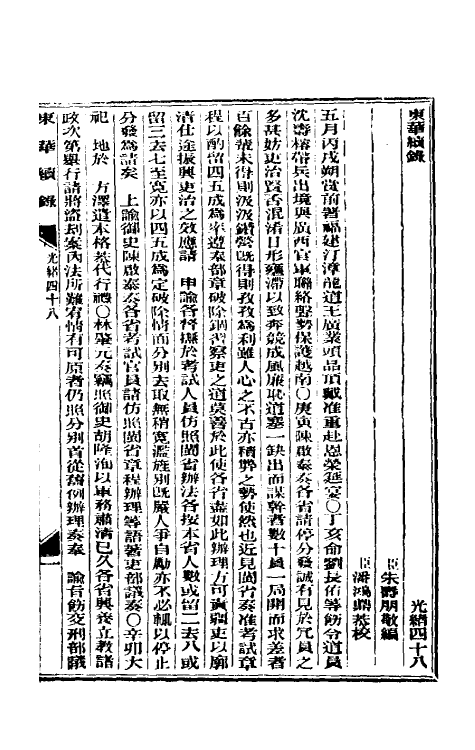 東華續錄
光緒四十八
臣朱壽朋敬編
臣潘鴻鼎恭校
五月丙戌朔賞前署福建汀漳龍道王廣業頭品頂戴准重赴恩榮筵宴〇丁亥命劉長佑等飭令道員
沈壽榕帶兵出境與廣西官軍聯絡聲勢保護越南〇庚寅陳啟泰奏各省請停分發誠有見於冗員之
多甚妨吏治賢否混淆日形壅滯以致奔競成風廉恥道塞一缺出而謀幹者數十員一局開而求差者
百餘輩未得則汲汲鑽營既得則孜孜為利雖人心之不古亦積弊之勢使然也近見閩省奏准考試章
程以酌留四五成為率遵奏部章破除錮習察吏之道莫善於此使各省盡如此辦理方可資疆吏以廓
清仕途振興吏治之效應請 申諭各督撫於考試人員仿照閩省辦法各按本省人數或留二去八或
留三去七至寬亦以四五成為定破除情面分別去取無稍寬濫旌別既嚴人爭自勵亦不必輒以停止
分發為請奏 上諭御史陳啟泰奏各省考試官員請仿照閩省章程辦理等語著吏部議奏〇辛卯大
祀 地於 方澤遣本格恭代行禮〇林肇元奏竊照御史胡隆洵以軍務肅清已久各省興養立教諸
政次第舉行請將盜劫案內法所難宥情有可原者仍照分別首從舊例辦理奏奏 諭旨飭交刑部議
東華續錄
光緒四十八